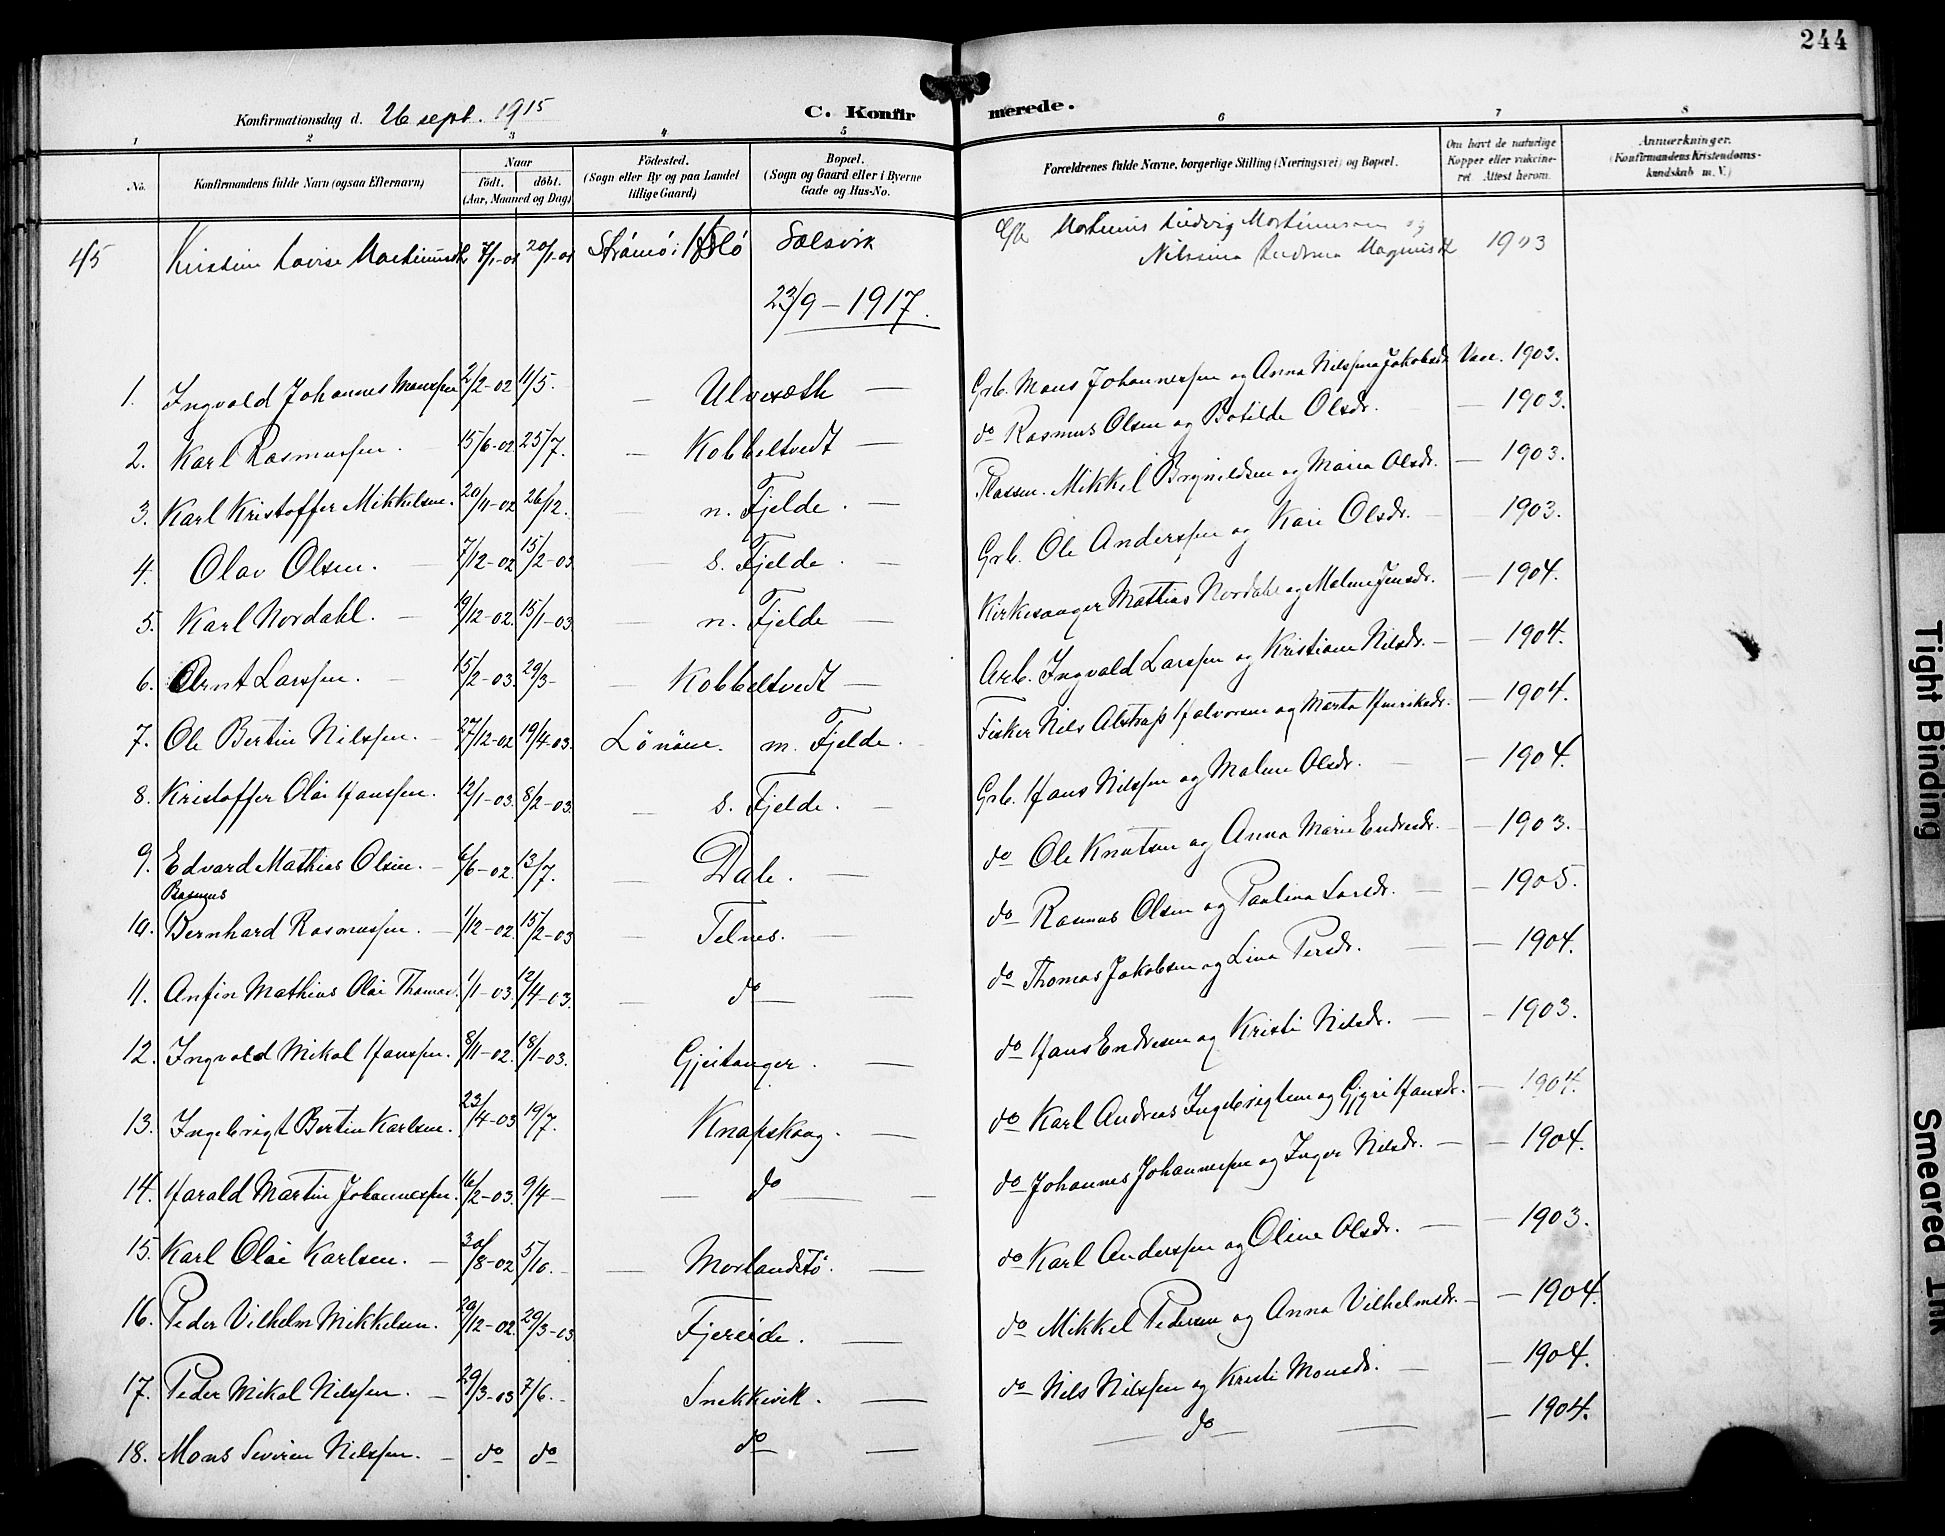 244
Konfirmationsdag d. 26 sept. 1915 C. Konfirmerede.
1 2 3 4 5 6 7 8
No. Konfirmandens fulde Navn (ogsaa Efternavn) Naar født. døbt. (Aar, Maaned og Dag) Fødested. (Sogn eller By og paa Landet tillige Gaard) Bopæl. (Sogn og Gaard eller i Byerne Gade og Hus-No. Forældrenes fulde Navne, borgerlige Stilling (Næringsvei) og Bopæl. Om havt de naturlige Kopper eller vakcineret. Attest herom. Anmærkninger. (Konfirmandens Kristendomskundskab m. V.)
45 Kristine Lovise 7/1-01 20/1-01 Solsvik Ludvig og 1903
23/9 - 1917.
1. Ingvald Johannes Monssen 2/2-02 11/5. — Ulvesæth — Grb. Mons Johannessen og Anna Nilssina Jakobsdr. Vacc. 1903.
2. Karl Rasmussen. — 15/6-02 25/7. — Kobbeltvedt — do Rasmus Olsen og Botilde Olsdr. — 1903.
3. Karl Kristoffer Mikkelsen. 20/11-02 26/12. — n. Fjelde. — Plassm. Mikkel Brynildsen og Maria Olsdr. — 1903.
4. Olav Olsen. — 7/12-02 15/2-03 — s. Fjelde. — Grb. Ole Anderssen og Kari Olsdr. — 1903.
5. Karl Nordahl. — 19/12-02. 15/1-03. — n. Fjelde — Kirkesanger Mattias Nordahl og Malene Jensdr. — 1904.
6. Arnt Larssen. — 15/2-03. 29/3- — Kobbeltvedt — Arb. Ingvald Larssen og Kristiane Nilsdr. — 1904.
7. Ole Bertin Nilssen. — 27/12-02 19/4-03. Lønøen. m. Fjelde. — Fisker Nils Halvorsen og Marta Henriksdr. — 1904.
8. Kristoffer Olai Hanssen. 12/1-03. 8/2-03. — s. Fjelde. — Grb. Hans Nilssen og Malene Olsdr. — 1904.
9. Edvard Mathias Olsen. — 6/6-02. 13/7. — Dale. — do Ole Knutsen og Anna Marie Endresdr. — 1903.
Rasmus
10. Bernhard Rasmussen. — 1/12-02. 15/2-03 — Telnes. — do Rasmus Olsen og Paulina Larsdr. — 1905.
11. Anfin Mathias Olai Thomas. 1/1-03. 12/4-03. — do — do Thomas Jakobsen og Lina Persdr. — 1904.
12. Ingvald Mikal Hanssen. 8/11-02. 18/1-03. Gjeitanger. — do Hans Endresen og Kristi Nilsdr. — 1903.
13. Ingebrigt Bertin Karlsen. 23/4-03 19/7. Knapskaag. — do Karl Andreas Ingebrigtsen og Gjyri Hansdr. — 1904.
14. Harald Martin Johannessen. 16/2-03. 9/4- — do — do Johannes Johannessen og Inger Nilsdr. — 1904.
15. Karl Olai Karlsen. — 30/8-02 5/10. — Morlandstø. — do Karl Anderssen og Oline Olsdr. — 1903.
16. Peder Vilhelm Mikkelsen. 29/12-02. 29/3-03 Fjereide. — do Mikkel Pedersen og Anna Vilhelmsdr. — 1904.
17. Peder Mikal Nilssen. — 29/3-03 7/6.- Snekkevik. — do Nils Nilssen og Kristi Monsdr. — 1904.
18. Mons Severin Nilssen. — do do do — — do — — 1904.
Tight Binding
Smeared Ink